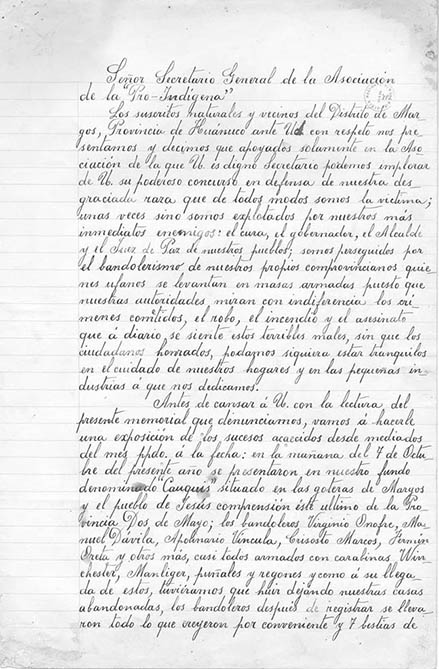 Señor Secretario General de la Asociación
de la "Pro-Indígena"
Los suscritos naturales y vecinos del Distrito de Mar-
gos, Provincia de Huánuco ante Ud con respeto nos pre-
sentamos y decimos que apoyados solamente en la Aso-
ciación de la que U. es digno Secretario podemos implorar
de U. su poderoso concurso en defensa de nuestra des
graciada raza que de todos modos somos la victima;
unas veces sino somos explotados por nuestros más
inmediatos enemigos: el cura, el gobernador, el Alcalde
y el Juez de Paz de nuestros pueblos; somos perseguidos por
el bandolerismo de nuestros propios comprovincianos quie-
nes ufanos se levantan en masas armadas puesto que
nuestras autoridades, miran con indiferencia los crí
menes cometidos, el robo, el incendio y el asesinato
que á diario se siente estos terribles males, sin que los
ciudadanos honrados, podamos siquiera estar tranquilos
en el cuidado de nuestros hogares y en las pequeñas in-
dustrias á que nos dedicamos.
Antes de cansar á U. con la lectura del
presente memorial que denunciamos, vamos á hacerle
una exposición de los sucesos acaecidos desde mediados
del mes ppdo. á la fecha: en la mañana del 7 de Octu
bre del presente año se presentaron en nuestro fundo
denominado "Cauquis" situado en las goteras de Margos
y el pueblo de Jesús comprensión éste ultimo de la Pro
vincia Dos de Mayo; los bandoleros Virginio Onofre, Ma-
nuel Dávila, Apolinario Váncula, Crisosto Marcos, Fermín
Oreta y otros más, casi todos armados con carabinas Win-
chester, Manliger, puñales y regones y como á su llega
da de estos, tuviéramos que huir dejando nuestras casas
abandonadas, los bandoleros después de registrar se lleva-
ron todo lo que creyeron por conveniente y 7 bestias de